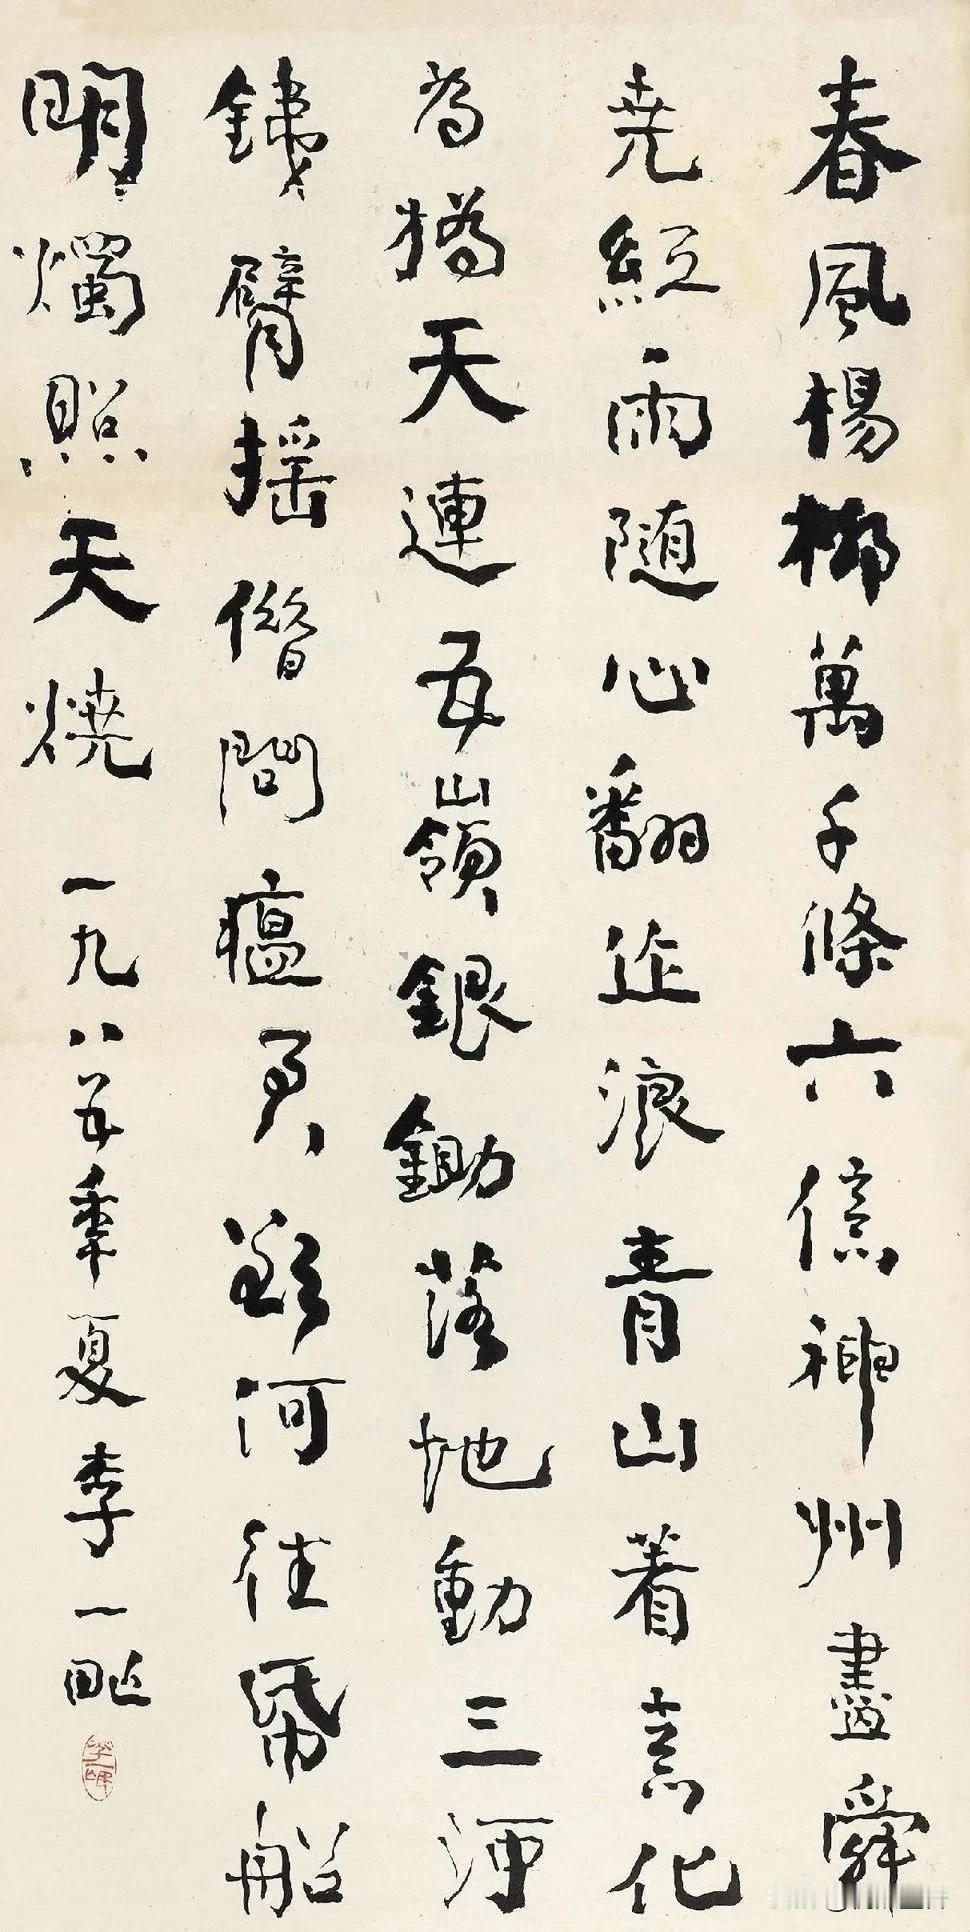 春風楊柳萬千條六億神州盡舜
堯紅雨随心翻作浪青山着意化
為橋天連五嶺銀鋤落地動三河
鐵臂搖借問瘟君欲何往帋船
明燭照天燒 一九八五年夏李一甿